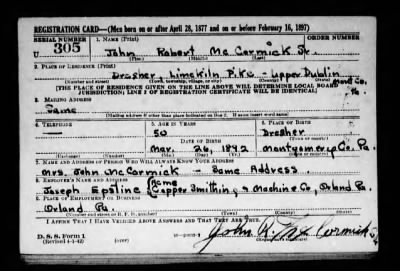 REGISTRATION CARD—(Men born on or after April 28, 1877 and on or before February 16, 1897)
SERIAL NUMBER 1. NAME (Print) ORDER NUMBER
U 305 John Robert McCormick Jr.
(First) (Middle) (Last)
2. PLACE OF RESIDENCE (Print)
Dresher, Limekiln Pike - Upper Dublin Mont Co.
(Number and street) (Town, township, village, or city) (County) (State)
[THE PLACE OF RESIDENCE GIVEN ON THE LINE ABOVE WILL DETERMINE LOCAL BOARD
JURISDICTION; LINE 2 OF REGISTRATION CERTIFICATE WILL BE IDENTICAL]
3. MAILING ADDRESS
Same
[Mailing address if other than place indicated on line 2. If same insert word same]
4. TELEPHONE 5. AGE IN YEARS 6. PLACE OF BIRTH
— 50 Dresher
DATE OF BIRTH (Town or county)
Mar. 26, 1892 Montgomery Co. Pa.
(Exchange) (Number) (Mo.) (Day) (Yr.) (State or country)
7. NAME AND ADDRESS OF PERSON WHO WILL ALWAYS KNOW YOUR ADDRESS
Mrs. John McCormick - Same Address.
8. EMPLOYER'S NAME AND ADDRESS
Name
Joseph Epstine Copper Smithing & Machine Co, Orland Pa.
9. PLACE OF EMPLOYMENT OR BUSINESS
Orland Pa.
(Number and street or R. F. D. number) (Town) (County) (State)
I AFFIRM THAT I HAVE VERIFIED ABOVE ANSWERS AND THAT THEY ARE TRUE.
D. S. S. Form 1
(Revised 4-1-42) (over)
John R. McCormick Jr